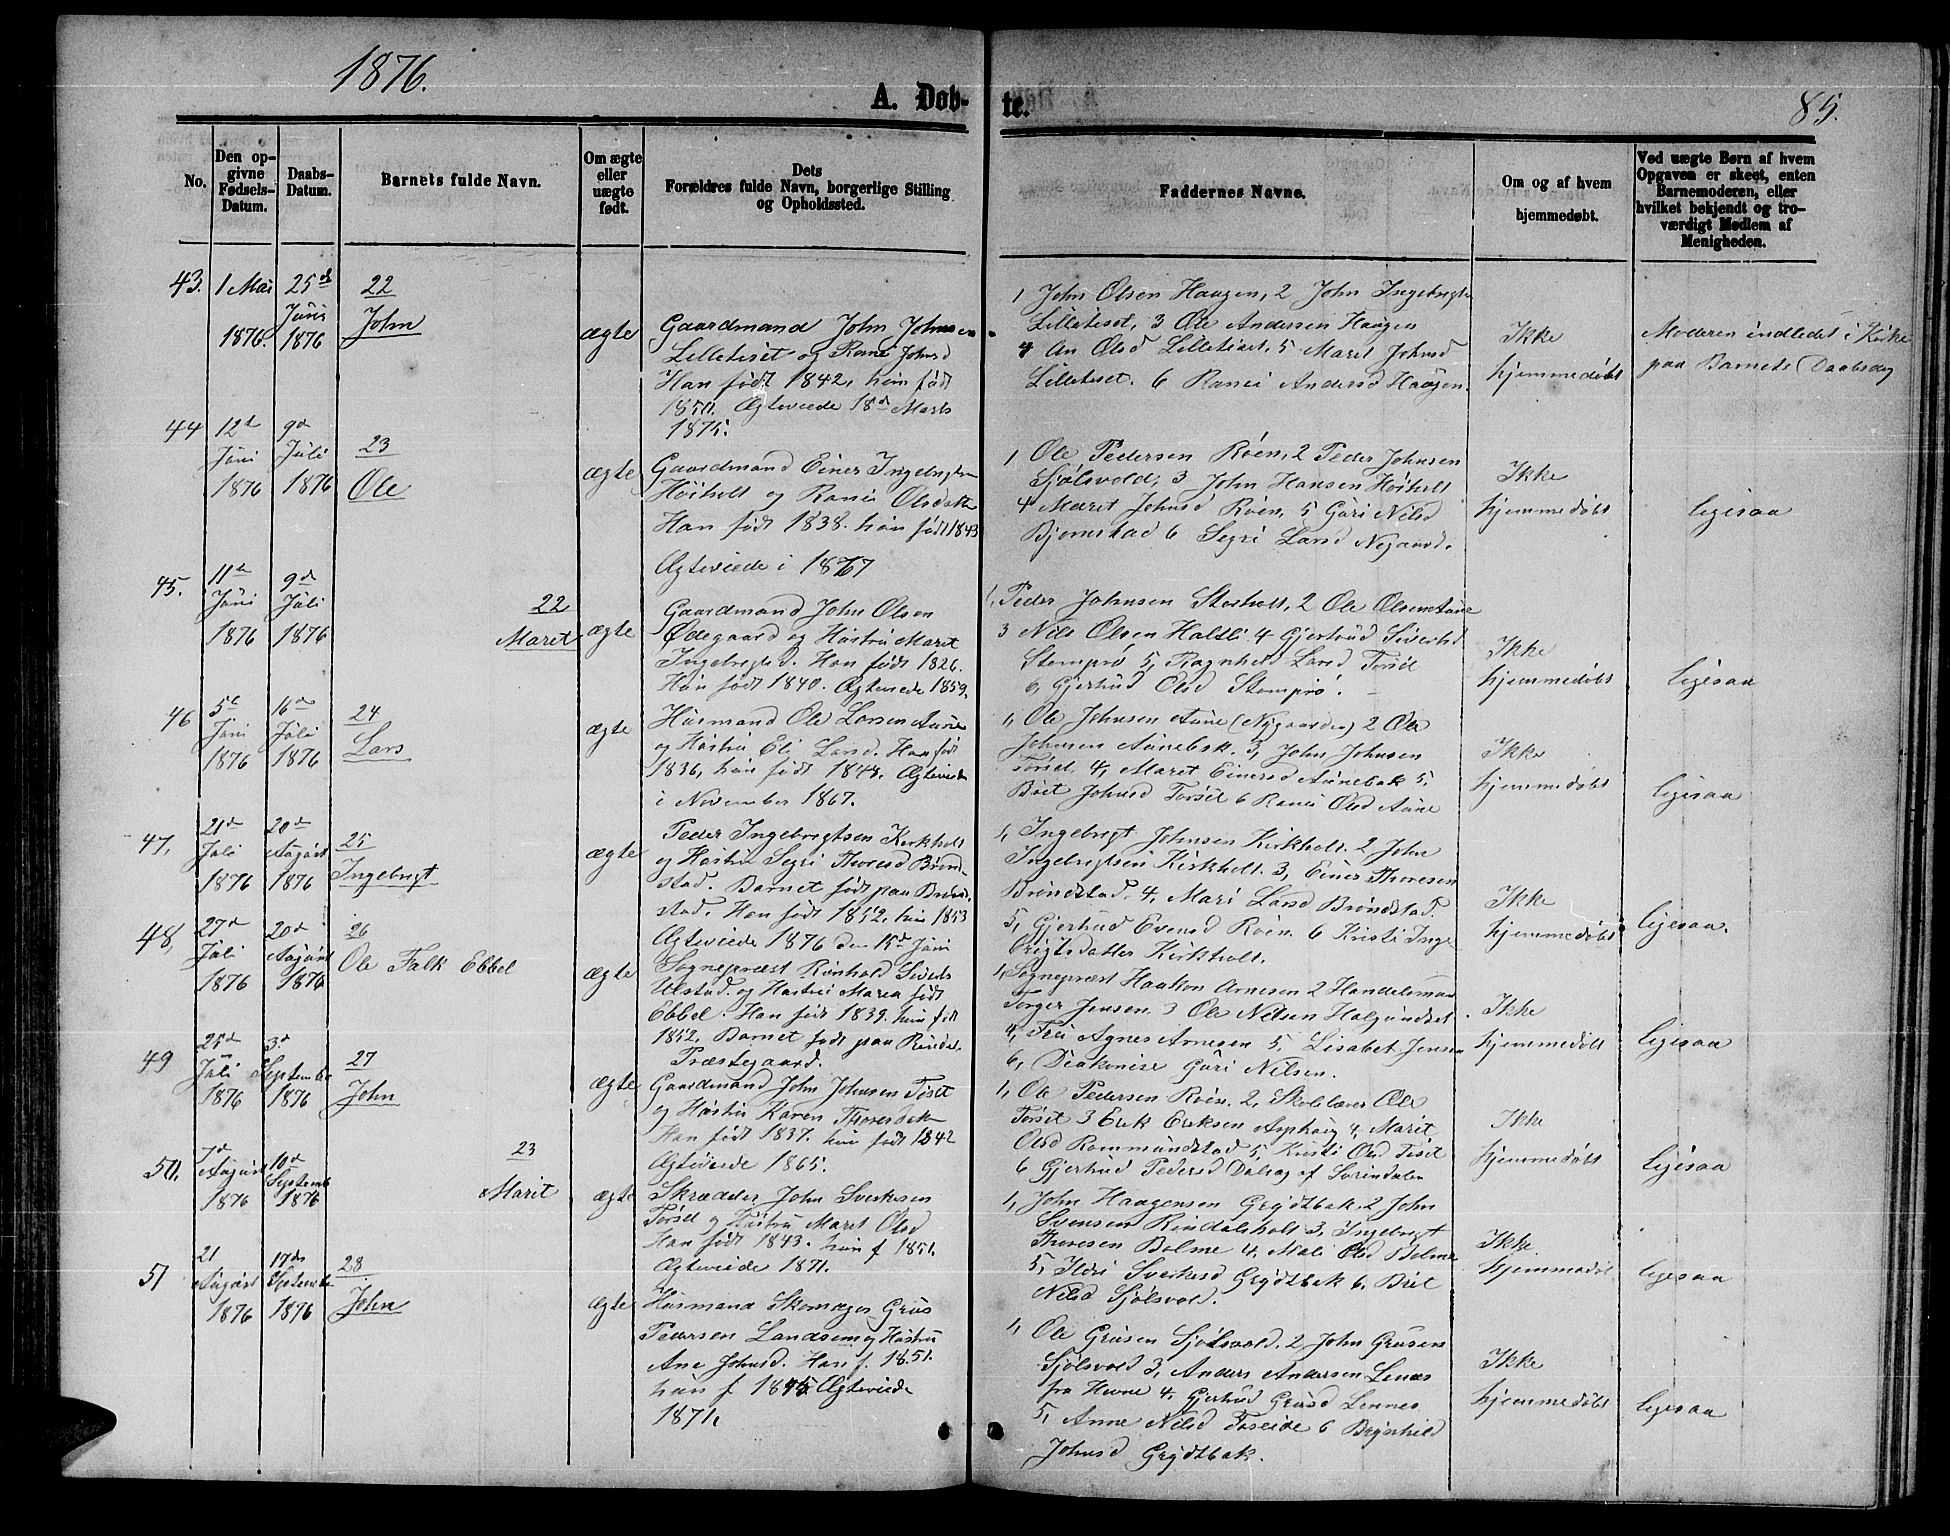 1876.
A. Døb-
te.
85.
No.
Den op-
givne
Fødsels-
Datum.
Daabs-
Datum.
Barnets fulde Navn.
Om ægte
eller
uægte
født.
Dets
Forældres fulde Navn, borgerlige Stilling
og Opholdssted.
Faddernes Navne.
Om og af hvem
hjemmedøbt.
Ved uægte Børn af hvem
Opgaven er skeet, enten
Barnemoderen, eller
hvilket bekjendt og tro-
værdigt Medlem af
Menigheden.
43. 1 Mai 25de 22
Juni John
1876. 1876
ægte
Gaardmand John Johnsen
Lilletiset og Johnsd
Han født 1842, hun født
Ægteviede 18de Marts
1875.
1 John Olsen Haugen, 2 John Ingebrigts
Lilletiset, 3 Ole Andersen Haugen
4 An Olsd Lilletiset, 5 Maret Johnsd
Lilletiset. 6 Andersd Haugen.
Ikke
hjemmedøbt
Moderen indledet i Kirke
paa Barnets Daabsdag
44 12te 9de 23
Juni Juli
1876 1876 Ole
ægte
Gaardmand Einer Ingebrigtsen
Høiholt og Olsdatter
Han født 1838. hun født 1843
Ægteviede i 1867
1 Ole Pedersen Røen, 2 Peder Johnsen
Sjølsvold, 3 John Hansen Høiholt
4 Maret Johnsd Røen, 5 Guri Nilsd
Bjørnstad 6 Segri Larsd Nygaard.
Ikke
hjemmedøbt
ligesaa
45. 11te 9de
Juni Juli 22
1876 1876 Maret
ægte
Gaardmand John Olsen
Ødegaard og Hustru Maret
Ingebrigtsd. Han født 1826.
Hun født 1840. Ægteviede 1859.
1, Peder Johnsen Storholt, 2 Ole Olsen Aune
3 Nils Olsen Haltli 4 Gjertrud Sivertsd
Stomprø 5, Ragnhild Larsd Torset
6, Gjertrud Olsd Stomprø.
Ikke
hjemmedøbt
ligesaa
46 5te 16de 24
Juni Juli Lars
1876 1876
ægte
Husmand Ole Larsen Aune
og Hustru Eli Larsd. Han født
1836, hun født Ægteviede
i November 1867.
1, Ole Johnsen Aune (Nygaarden) 2 Ole
Johnsen Aunebak. 3, John Johnsen
Torset. 4, Maret Einersd Aunebak 5,
Johnsd Torset 6 Olsd Aune
Ikke
hjemmedøbt
ligesaa
47, 21de 20de 25
Juli August
1876 1876 Ingebrigt
ægte
Peder Ingebrigtsen Kirkholt
og Hustru Segri Thoresd Brønd-
stad. Barnet født paa Brønd-
stad. Han født 1852. hun 1853
Ægteviede 1876 den 15de Juni
1, Ingebrigt Johnsen Kirkholt. 2 John
Ingebrigtsen Kirkholt. 3, Einer Thoresen
Brøndstad. 4, Mari Larsd Brøndstad.
5, Gjertrud Evensd Røen. 6 Kristi Inge
brigtsdatter Kirkholt.
Ikke
hjemmedøbt
ligesaa.
48, 27de 20de 26
Juli August Ole Falk Ebbel
1876 1876
ægte
Sogneprest
Ulstad. og Hustru Maren født
Ebbel. Han født 1839. hun født
1852. Barnet født paa Rindal
Præstegaard.
1, Sogneprest Haakon Arnesen 2 Handelsmand
Torger Jensen. 3 Ole Nilsen Halgundset.
4, Fru Agnes Arnesen 5, Lisabet Jensen
6, Diakonise Guri Nilsen.
Ikke
hjemmedøbt
ligesaa
49 25de 3de 27
Juli September
1876 1876 John
ægte
Gaardmand John Johnsen Tiset
og Hustru Karen Thoresdatter
Han født 1837. hun født 1842
Ægteviede 1865.
1, Ole Pedersen Røen. 2, Skolelærer Ole
Torset 3 Erik Eriksen Asphaug 4, Marit
Olsd Rommundstad 5, Kristi Olsd Tiset
6 Gjertrud Pedersd Dalsæg af Surendalen
Ikke
hjemmedøbt
ligesaa
50, 7de 10de 23
August September
1876 1876 Marit
ægte
Skrædder John Sverkesen
Torset og Hustru Maret Olsd
Han født 1843. hun f 1851.
Ægteviede 1871.
1, John Haagensen Grøtbak, 2 John
Svensen Rindalsholt 3, Ingebrigt
Thoresen Bolme 4, Mali Olsd Bolme
5, Ildri Sverkesd Grøtbak 6,
Nilsd Sjølsvold.
Ikke
hjemmedøbt
ligesaa
51 21 17de 28
August September
1876 1876 John
ægte
Husmand Skomager Grus
Pedersen Landsem og Hustru
Ane Johnsd. Han f. 1851.
hun f Ægteviede
1871.
1, Ole Grusen Sjølsvold. 2 John Grusen
Sjølsvold 3, Anders Andersen Lenes
fra Hevne 4, Gjertrud Grusd Lennes
5, Anne Nilsd 6
Johnsd Grøtbak.
Ikke
hjemmedøbt
ligesaa